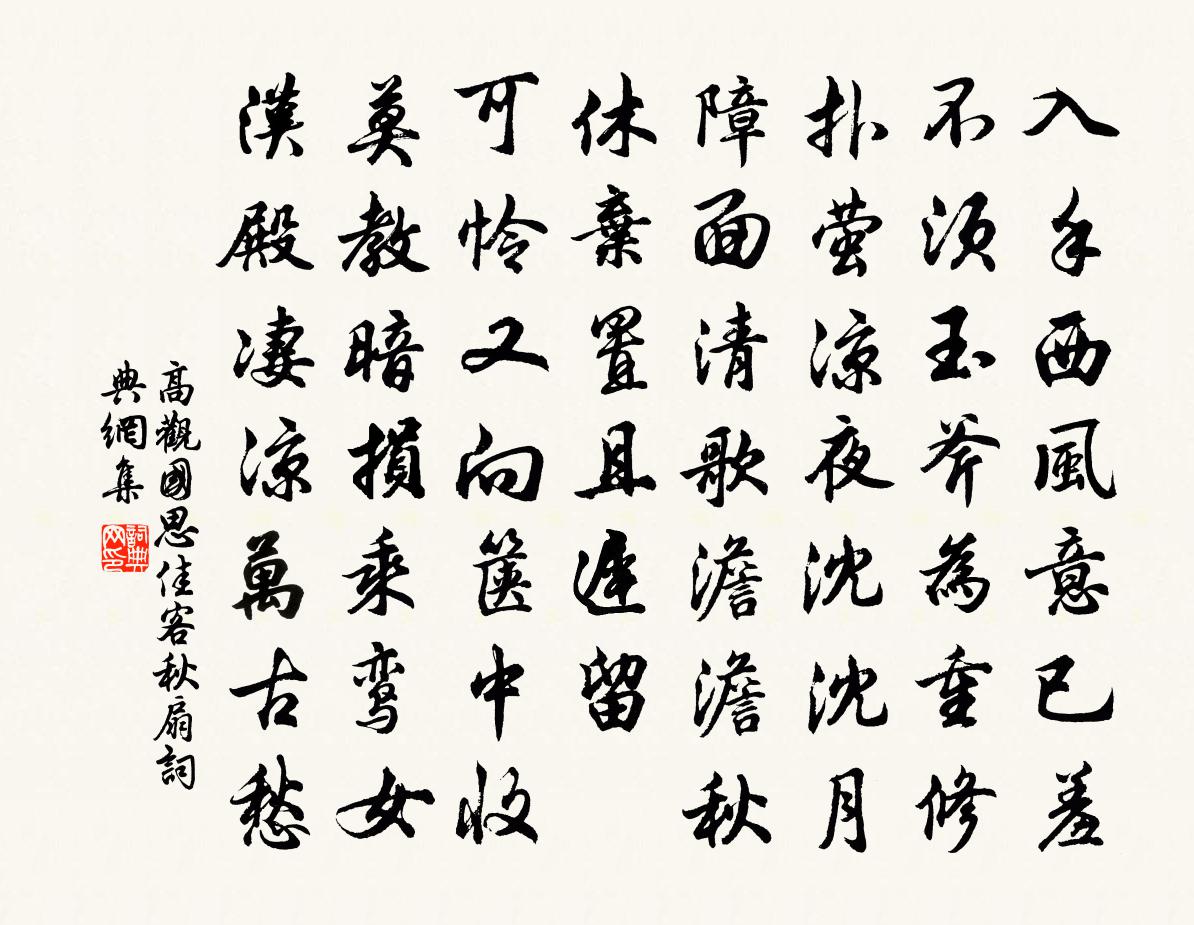 入手西風意已羞
不須玉斧為重修
扑萤涼夜沈沈月
障面清歌澹澹秋
休棄置且遲留
可怜又向篋中收
莫教暗損乘鸾女
漢殿凄涼萬古愁
高觀國思佳客秋扇詞
典網集
詞典网印